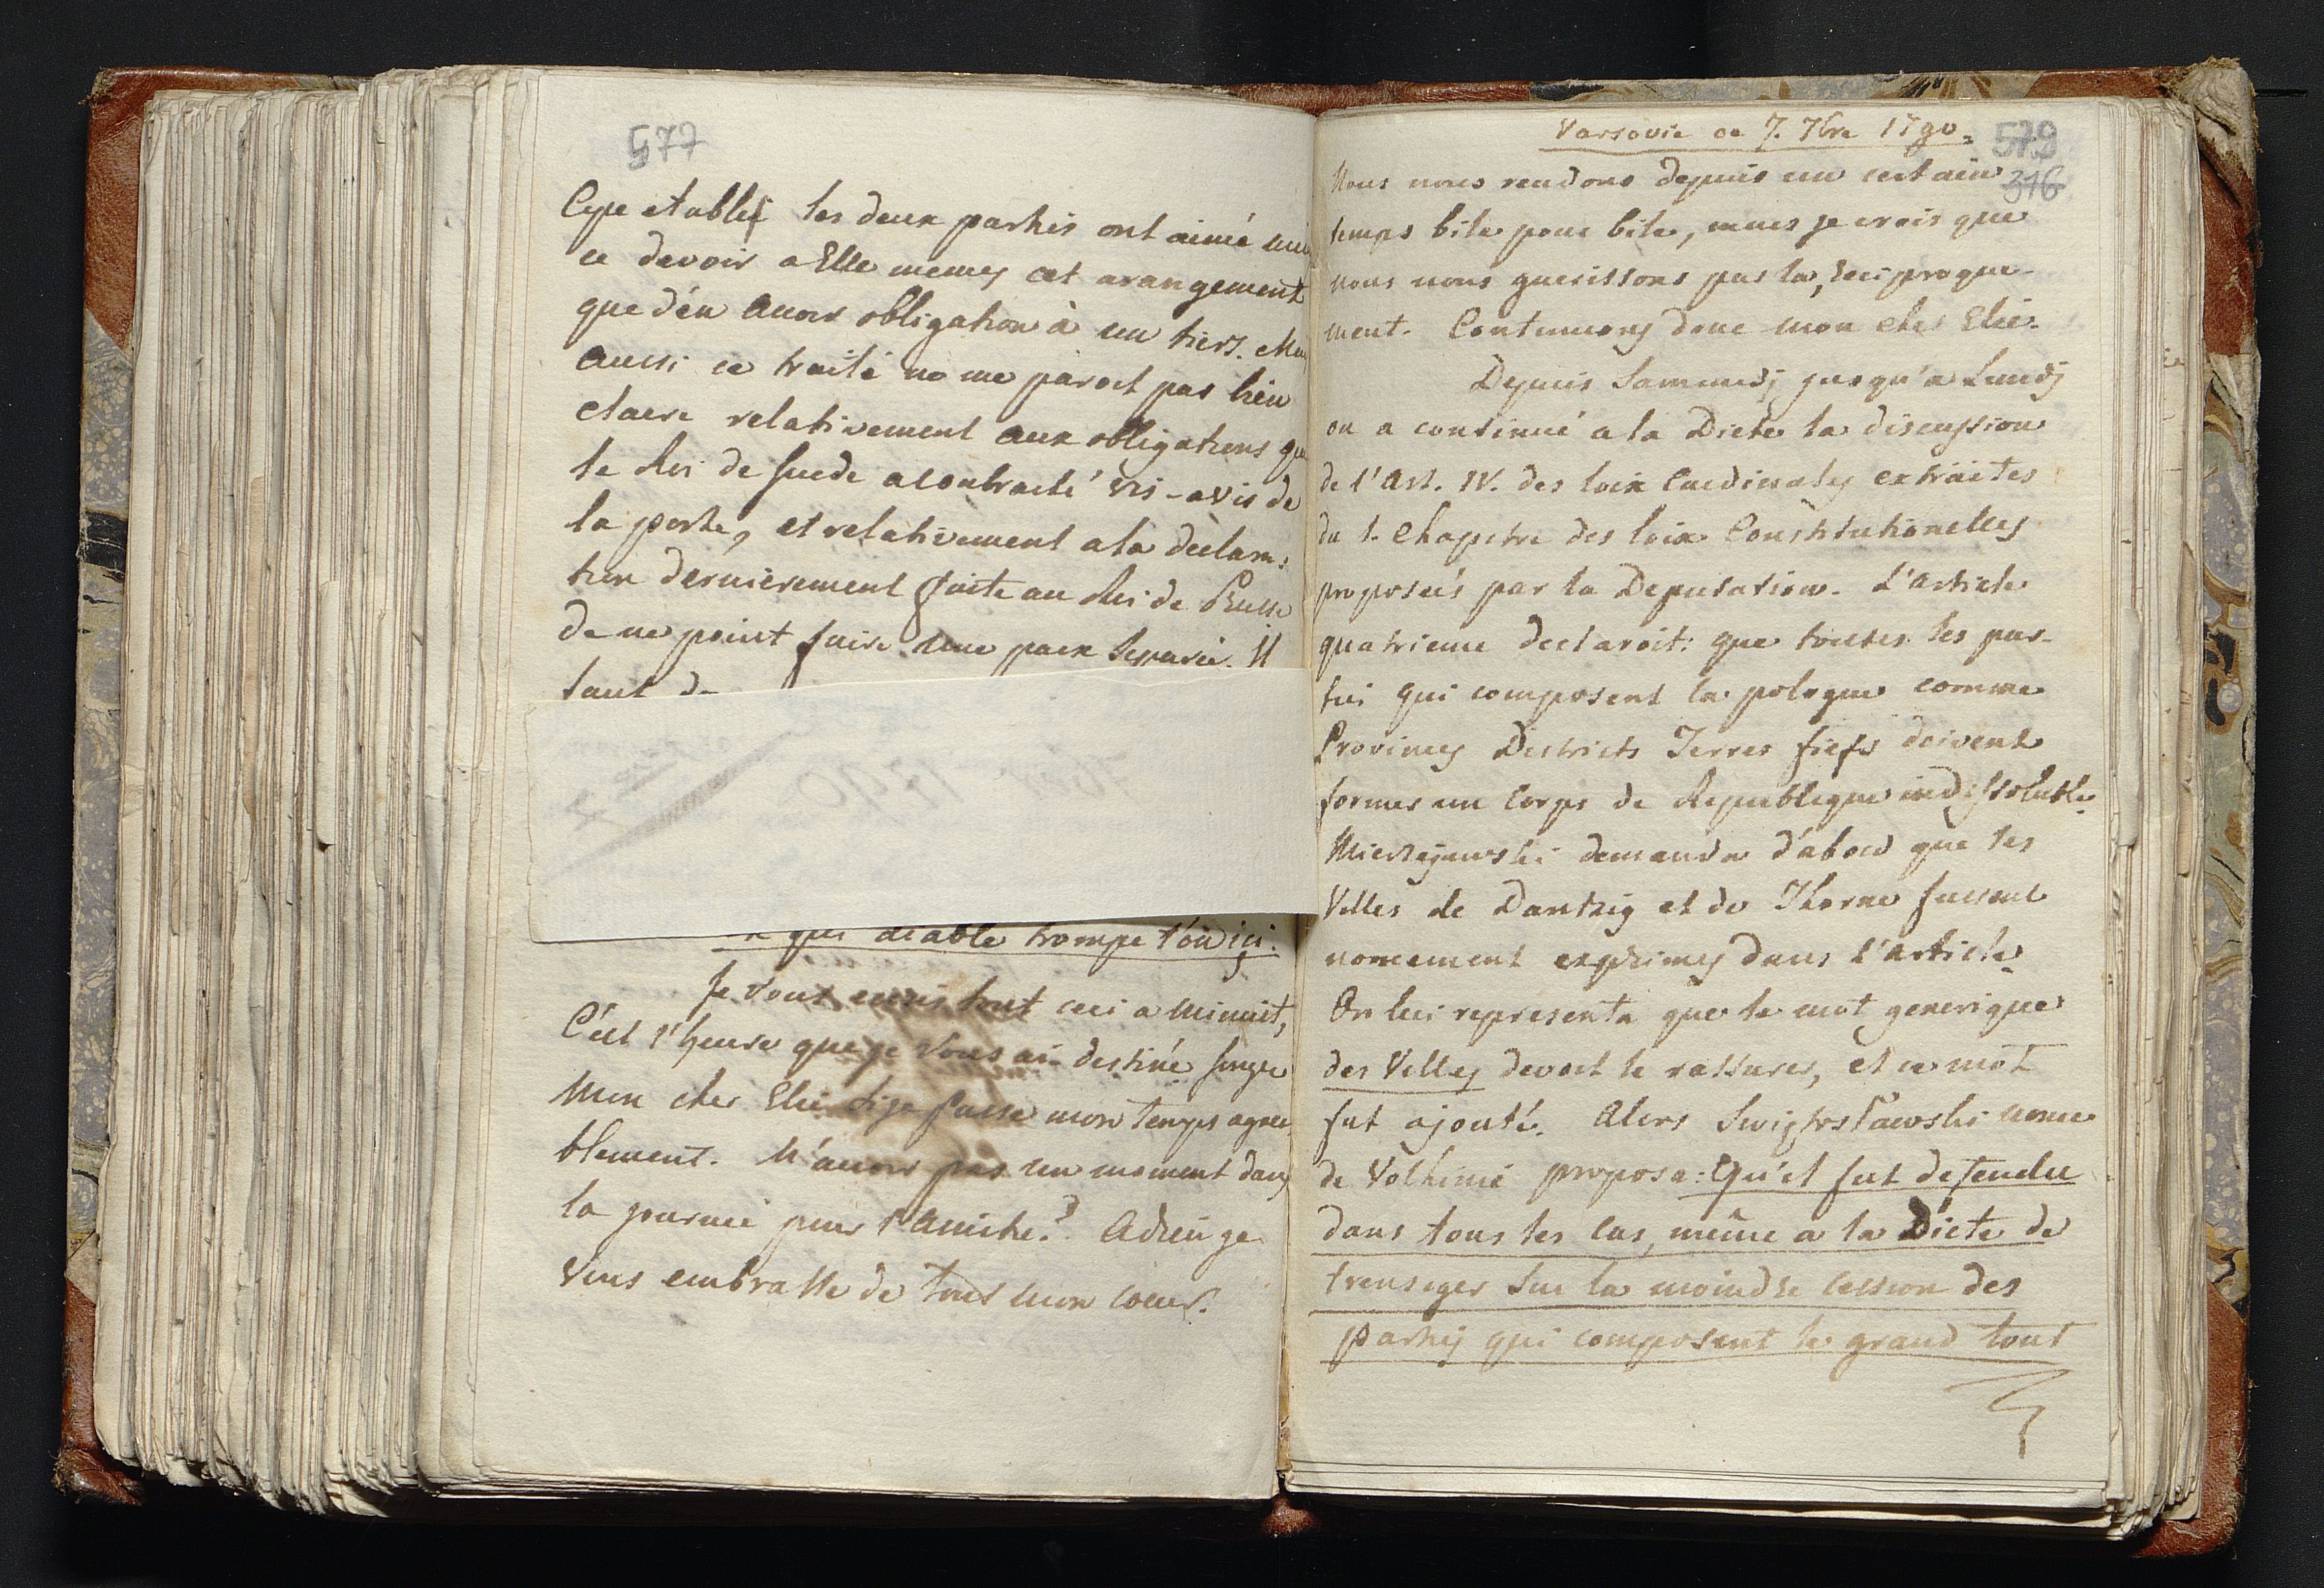 577
Cipe etablis les deux parties ont aimé
ce devoir a Elle memes cet arangement
que d'en avoir obligation à un tiers.
aussi ce traité ne me paroit pas bien
claire relativement aux obligations
le Roi de Suede a contracté vis-avis de
la porte, et relativement a la declara:
tion dernierement faite au Roi de Prusse
de ne point faire une paix separée. Il
faut
1790
diable trompe t'on ici.
Je vous ecris tout ceci a minuit,
C'est l'heure que je vous ai destiné
Mon cher Elie si je passe mon temps agrea
blement. N'avoir pas un moment dans
la journée pour l'amitie.? Adieu je
vous embrasse de tout mon coeur.
Varsovie ce 7. 7bre 1790.
579
316
Nous nous rendons depuis un certain
temps bile pour bile, mais je crois que
nous nous guerissons par la, reciproque-
ment. Continuons donc mon cher Elie.
Depuis Sammedj jusqu'a Lundj
on a continué a la Diete la discussion
de l'Art. IV. des loix Cardinales extraites
du 1. Chapitre des loix Constitutionelles
proposées par la Deputation. L'article
quatrieme declaroit: que toutes les par-
ties qui composent la pologne comme
Provinces Districts Terres fiefs doivent
former un Corps de Republique indissoluble.
Mierzejewski demanda d'abord que les
Villes de Dantzig et de Thorne fussent
nomement exprimes dans l'article.
On lui representa que le mot generique
des Villes devoit le rassurer, et ce mot
fut ajouté. Alors Swiętosławski nonce
de Volhinie proposa: Qu'il fut defendu
dans tous les cas, même a la Diete de
transiger sur la moindre cession des
parties qui composent le grand tout